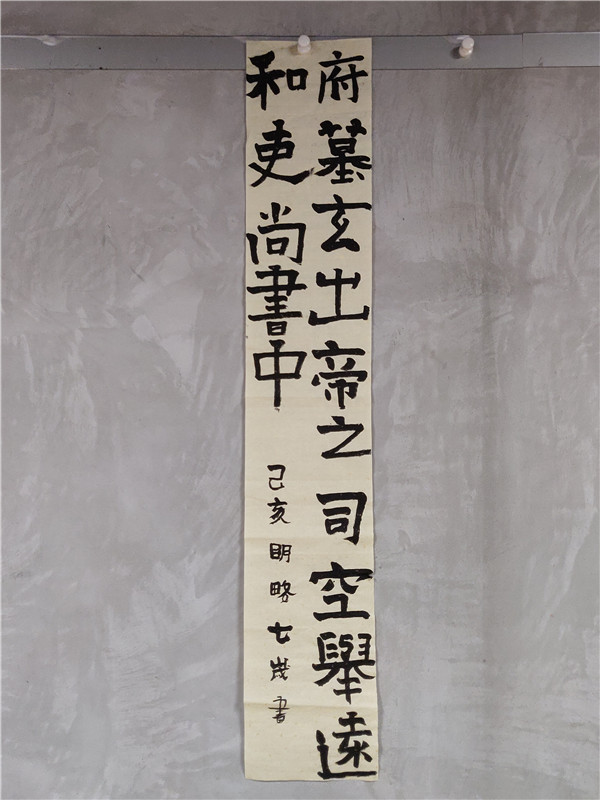 府墓玄出帝之司空舉遠
和吏尚書中
己亥明略七歲書